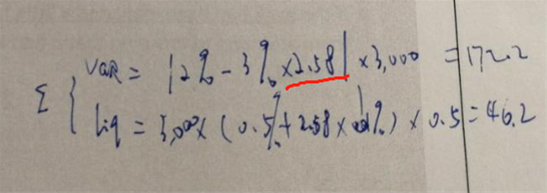 VaR = |2% - 3% × 2.58| × 3,000 = 172.2
Σ {
Liq = 3,000 × (0.5% + 2.58 × 1%) × 0.5 = 46.2